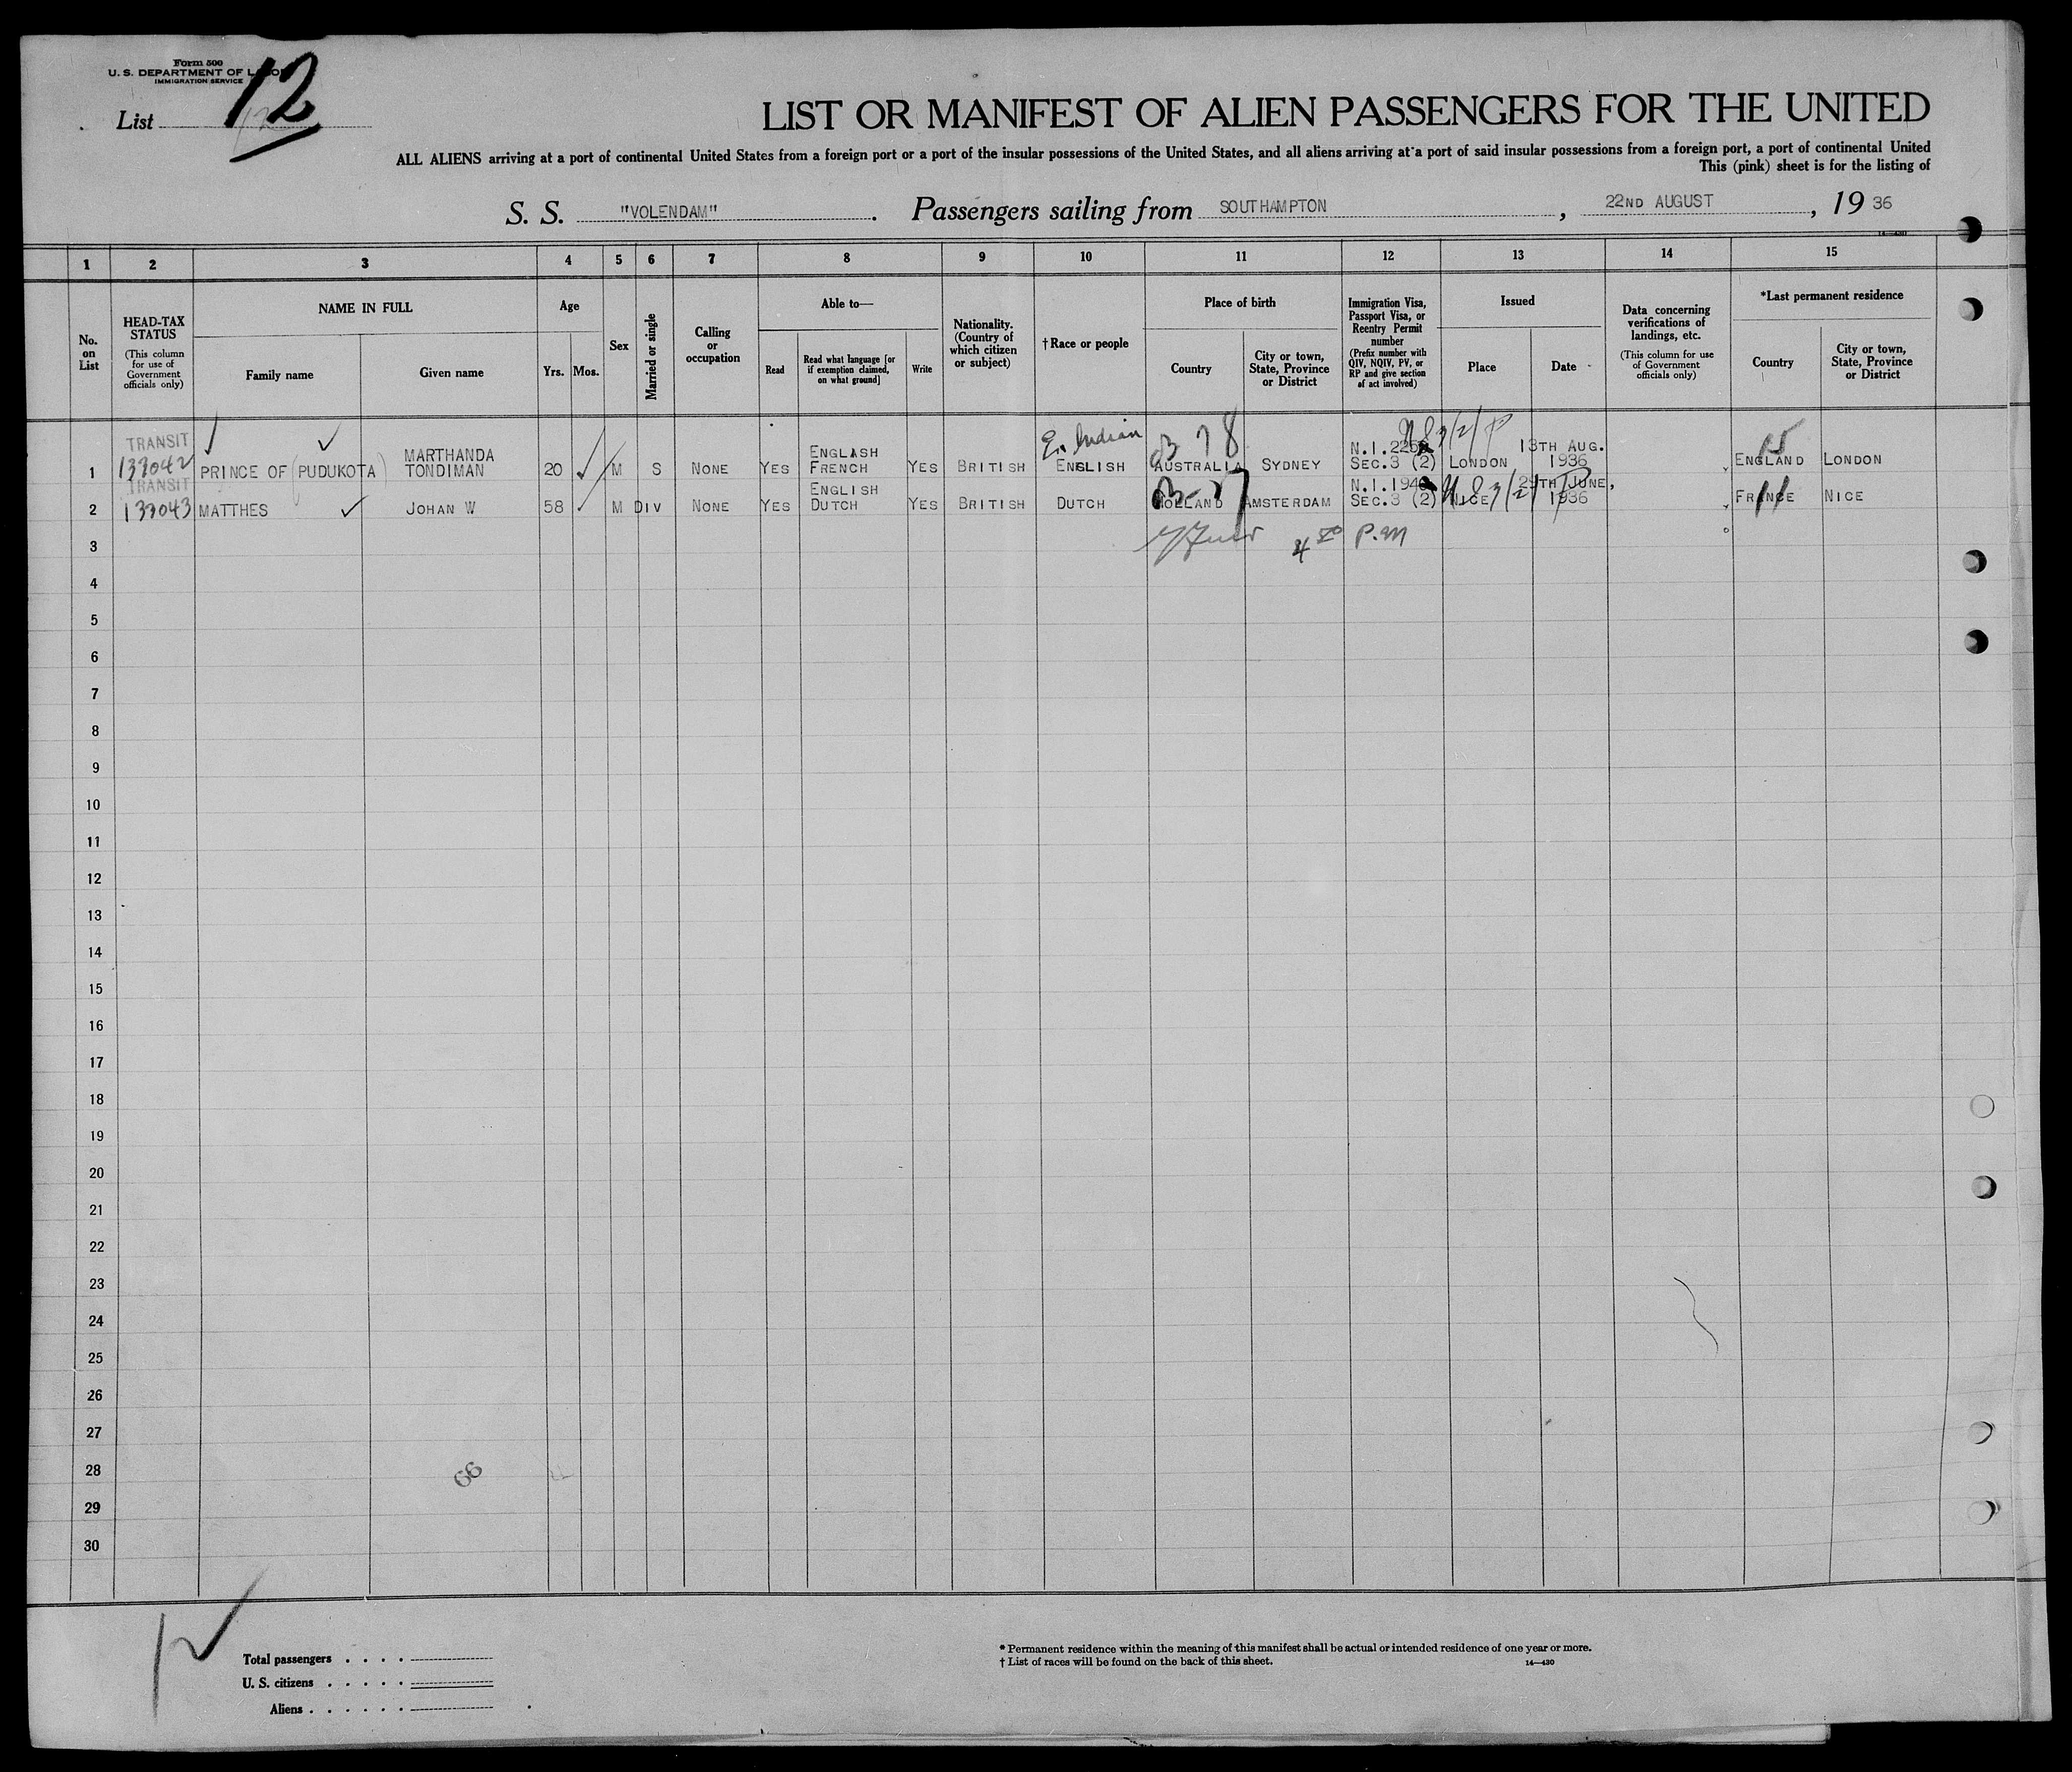 Form 500
U. S. DEPARTMENT OF LABOR
IMMIGRATION SERVICE
List 12
LIST OR MANIFEST OF ALIEN PASSENGERS FOR THE UNITED
ALL ALIENS arriving at a port of continental United States from a foreign port or a port of the insular possessions of the United States, and all aliens arriving at a port of said insular possessions from a foreign port, a port of continental United
This (pink) sheet is for the listing of
S. S. "VOLENDAM". Passengers sailing from SOUTHAMPTON, 22ND AUGUST, 19 36
1 2 3 4 5 6 7 8 9 10 11 12 13 14 15
No. on List
HEAD-TAX STATUS (This column for use of Government officials only)
NAME IN FULL
Family name
Given name
Age
Yrs.
Mos.
Sex
Married or single
Calling or occupation
Able to—
Read
Read what language [or if exemption claimed, on what ground]
Write
Nationality. (Country of which citizen or subject)
†Race or people
Place of birth
Country
City or town, State, Province or District
Immigration Visa, Passport Visa, or Reentry Permit number (Prefix number with QIV, NQIV, PV, or RP and give section of act involved)
Issued
Place
Date
Data concerning verifications of landings, etc. (This column for use of Government officials only)
*Last permanent residence
Country
City or town, State, Province or District
1 TRANSIT 133042 PRINCE OF (PUDUKOTA) MARTHANDA TONDIMAN 20 M S NONE YES ENGLASH FRENCH YES BRITISH E. Indian ENGLISH AUSTRALIA SYDNEY N.I. SEC.3 (2) LONDON 13TH AUG. 1936 ENGLAND LONDON
2 TRANSIT 133043 MATTHES JOHAN W 58 M DIV NONE YES ENGLISH DUTCH YES BRITISH DUTCH HOLLAND AMSTERDAM N.I. SEC.3 (2) NICE JUNE, 1936 FRANCE NICE
3 P.M
4
5
6
7
8
9
10
11
12
13
14
15
16
17
18
19
20
21
22
23
24
25
26
27
28 66
29
30
Total passengers
U. S. citizens
Aliens
* Permanent residence within the meaning of this manifest shall be actual or intended residence of one year or more.
† List of races will be found on the back of this sheet.
14—430